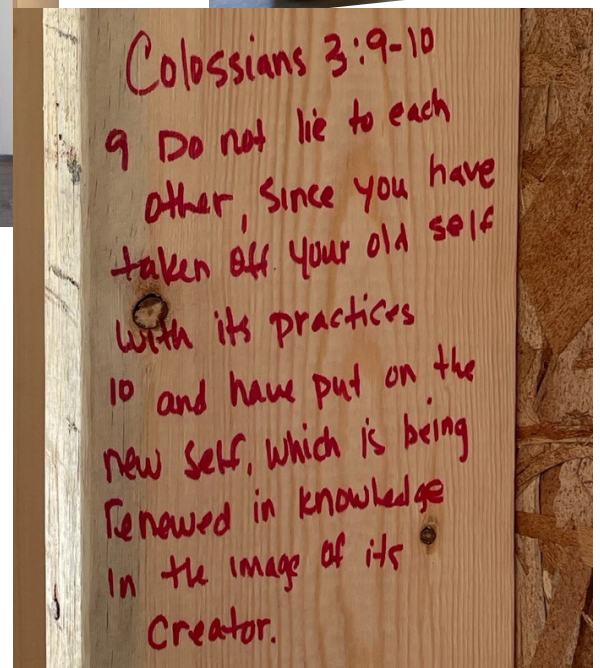 Colossians 3:9-10
9 Do not lie to each
other, since you have
taken off your old self
with its practices
10 and have put on the
new self, which is being
renewed in knowledge
in the image of its
Creator.